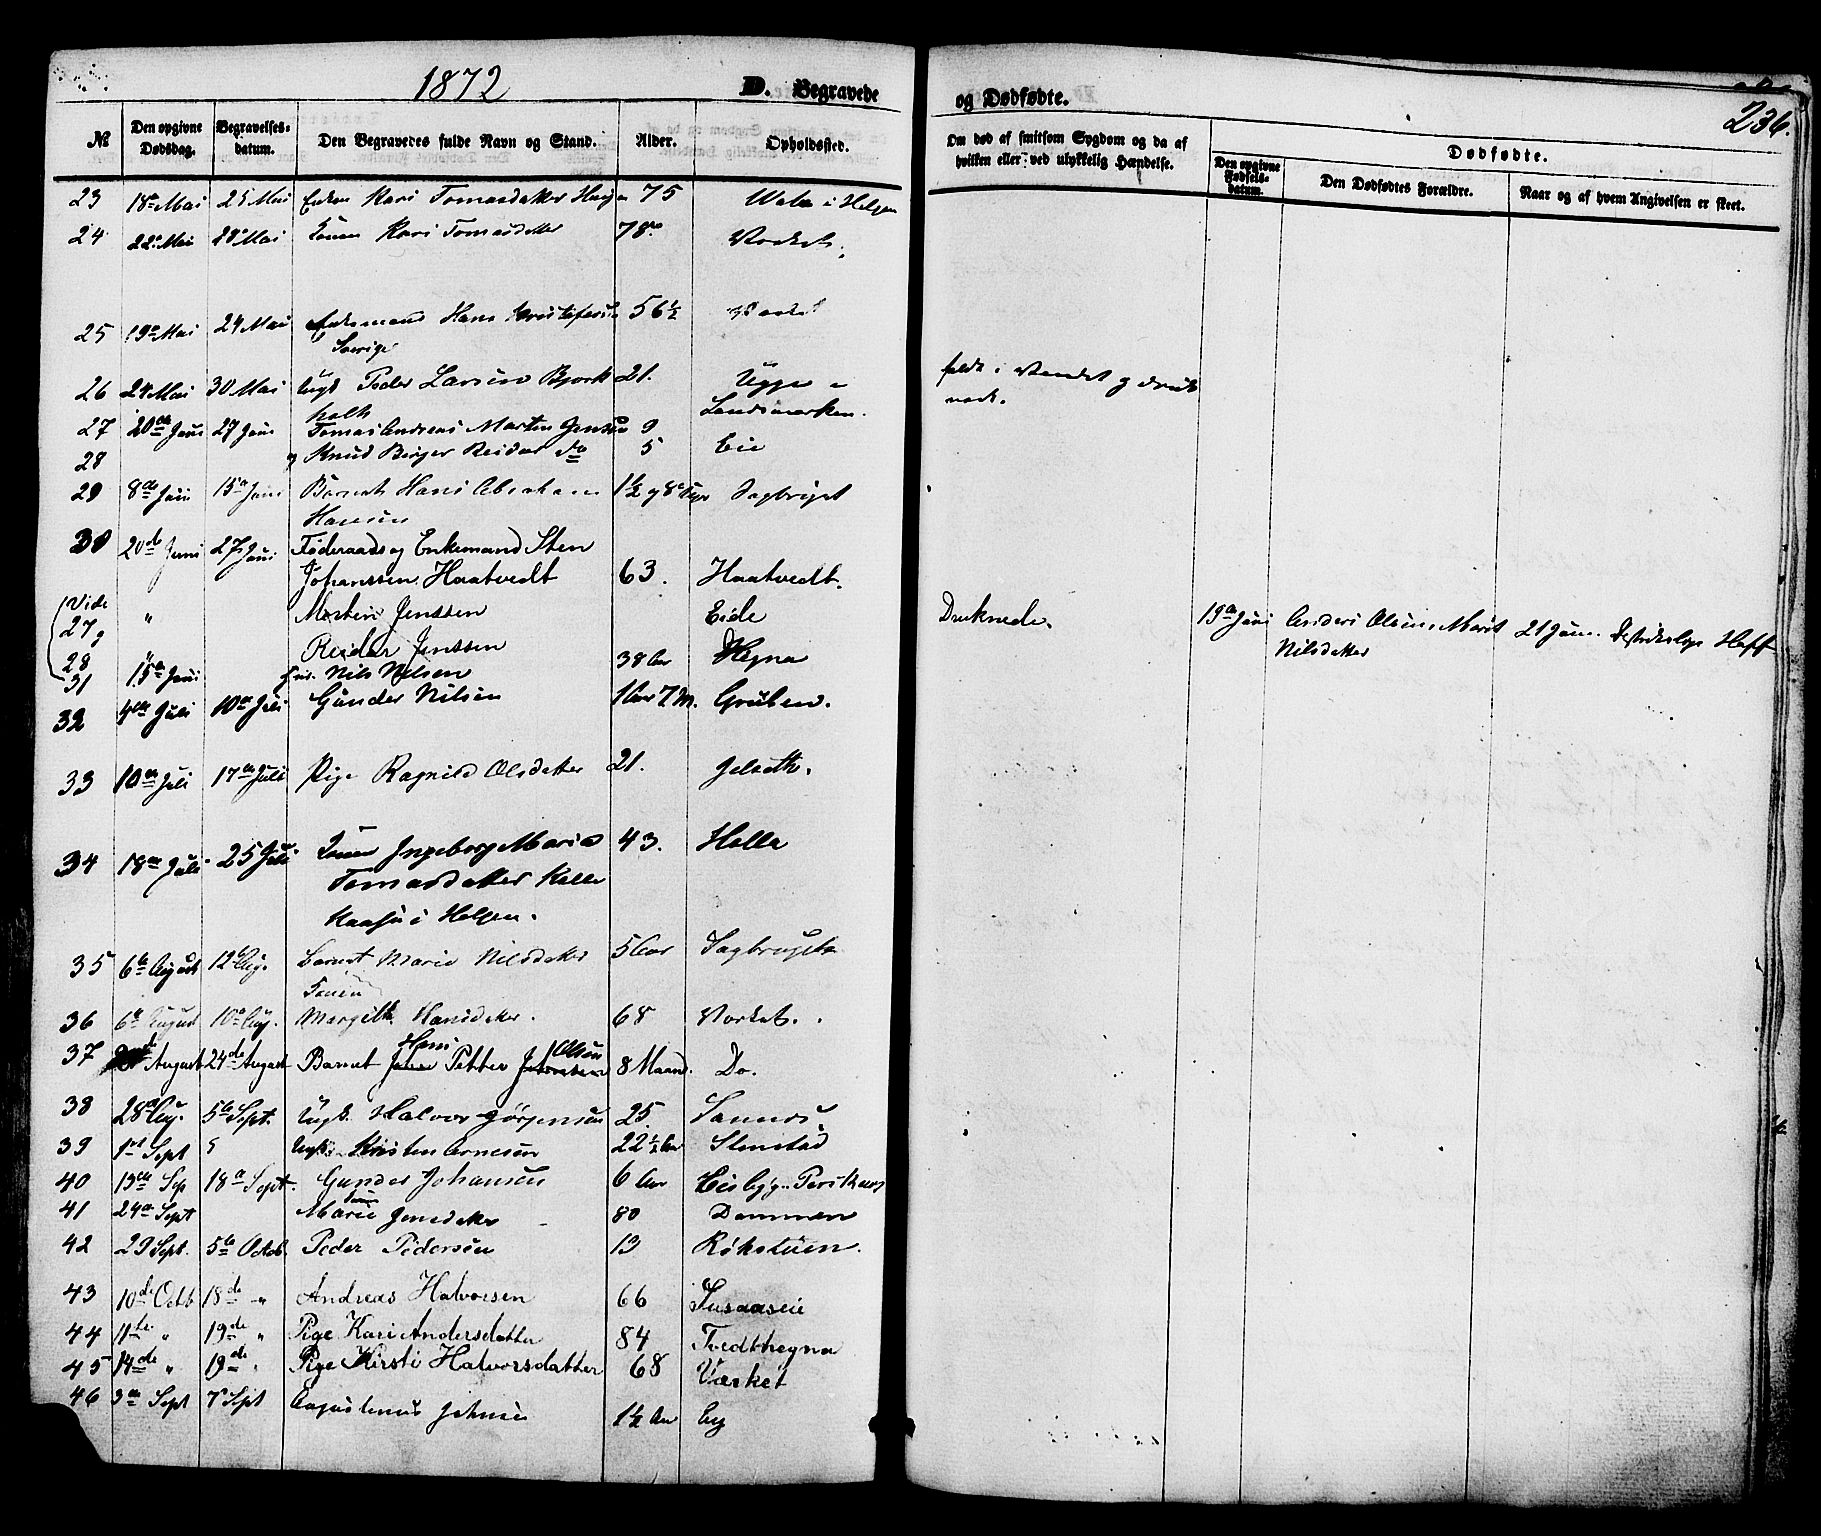 1872
D. Begravede
og Dødfødte.
236.
№ Den opgivne Dødsdag. Begravelses-datum. Den Begravedes fulde Navn og Stand. Alder. Opholdssted.
Om død af smitsom Sygdom og da af hvilken eller ved ulykkelig Hændelse.
Dødfødte.
Den opgivne Fødsels-datum. Den Dødfødtes Forældre. Naar og af hvem Angivelsen er skeet.
23 18de Mai 25 Mai Enken Kari Tomasdatter 75 i Helgen
24 22de Mai 28de Mai Konen Kari Tomasdatter 78 Værket
25 19de Mai 24 Mai Enkemand Hans Kristofersen 56½ Værket
Sverige
26 24 Mai 30 Mai Ungk. Peder Larsen Bjørk 21.
holt Landsmarken.
i Vandet og druk
nede.
27 20de Juni 27 Juni Tomas Andreas Martin Jensen 9
28 og Knud Birger Reidar do 5 Eie
29 8de Juni 15de Juni Barnet Hans Abraham 1½ og 8 Sagbruget
Hansen
30 20de Juni 27 Juni Føderaads og Enkemand Sten
Johanssen Haatvedt 63. Haatvedt.
(Vide
27 og " Morten Jenssen Eide Druknede.
28 " Reidar Jenssen
19de Juni Anders Olsen Marit 21 Juni Heft
Nilsdatter
31 15de Juni Nils Nilsen 38 Aar Hegna
32 4de Juli 10de Juli Gunder Nilsen 1 Aar 7 M. Gruben.
33 10de Juli 17de Juli Pige Ragnild Olsdatter 21. Jelseth.
34 18de Juli 25 Juli Konen Ingeborg Maria 43. Holla
Tomasdatter Kolle
Kaasa i Helgen.
35 6te August 12te Aug. Barnet Marie Nilsdatter 5 Aar Sagbruget
36 6te August 10de Aug. Margith Hansdatter. 68 Værket.
Hans Olsen
37 August 24de August Barnet Petter 8 Maan. Do.
38 28de Aug. 5te Sept. Ungk. Halvor Jørgensen 25.
39 1ste Sept 5 Ungk. Kristen Arnesen 22½ Aar Stenstad
40 13de Sep 18de Sept. Gunder Johansen 6 Aar
41 24de Sept Marie Jensdatter 80 Dammen
42 29 Sept. 5te Octob. Peder Pedersen 13 Rökstuen.
43 10de Octb 18de " Andreas Halvorsen 66 Susaaseie
44 11te " 19de " Pige Kari Andersdatter 84 Tvedthegna
45 14de " 19de " Pige Kirsti Halvorsdatter 68 Værket
46 3de Sept 7de Sept Augustinus Johnsen 1½ Aar